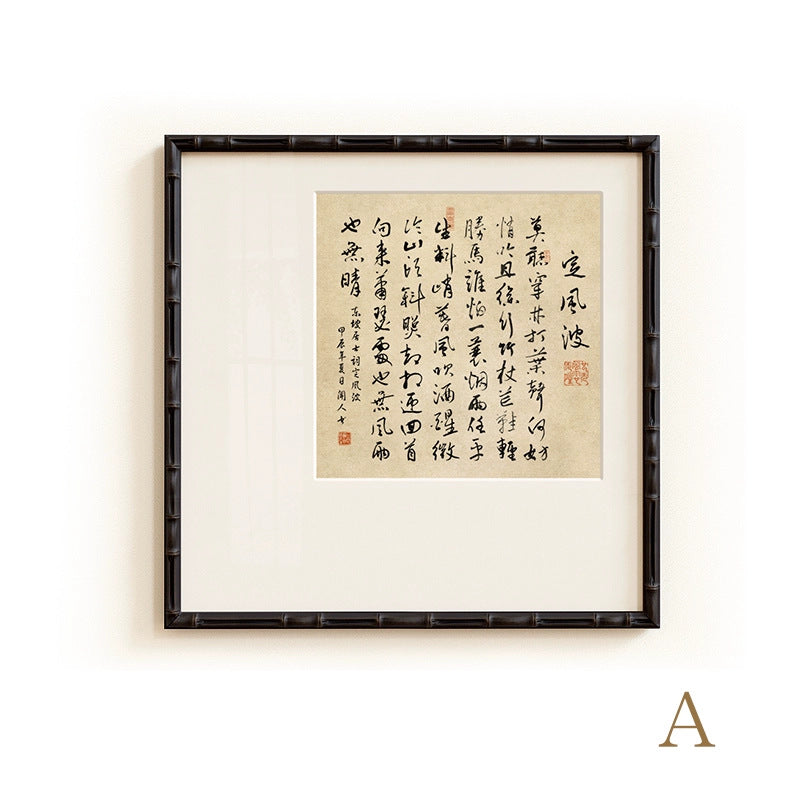 定風波
莫聽穿林打葉聲何妨
且徐行竹杖芒鞋輕
勝馬誰怕一蓑烟雨任平
生料峭春風吹酒醒微
冷山頭斜照却相迎回首
向来蕭瑟處也無風雨
也無晴
东坡居士詞定風波
甲辰年夏日闲人书
A